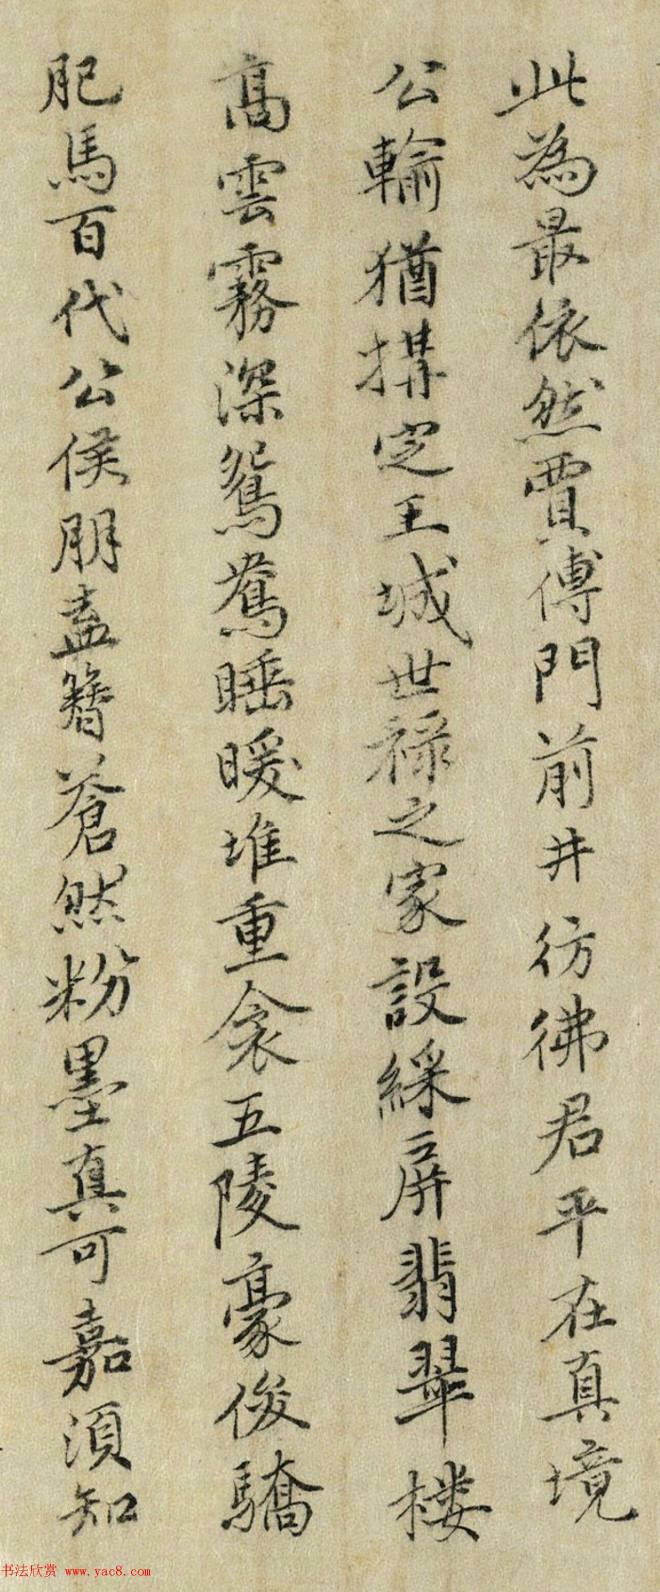 此為最依然賈傅門前井彷彿君平在真境
公輸猶搆定王城世祿之家設綵屏翡翠樓
高雲霧深鴛鴦睡暖堆重衾五陵豪俊驕
肥馬百代公侯朋盍簪蒼然粉墨真可嘉須知
书法欣赏 www.yac8.com